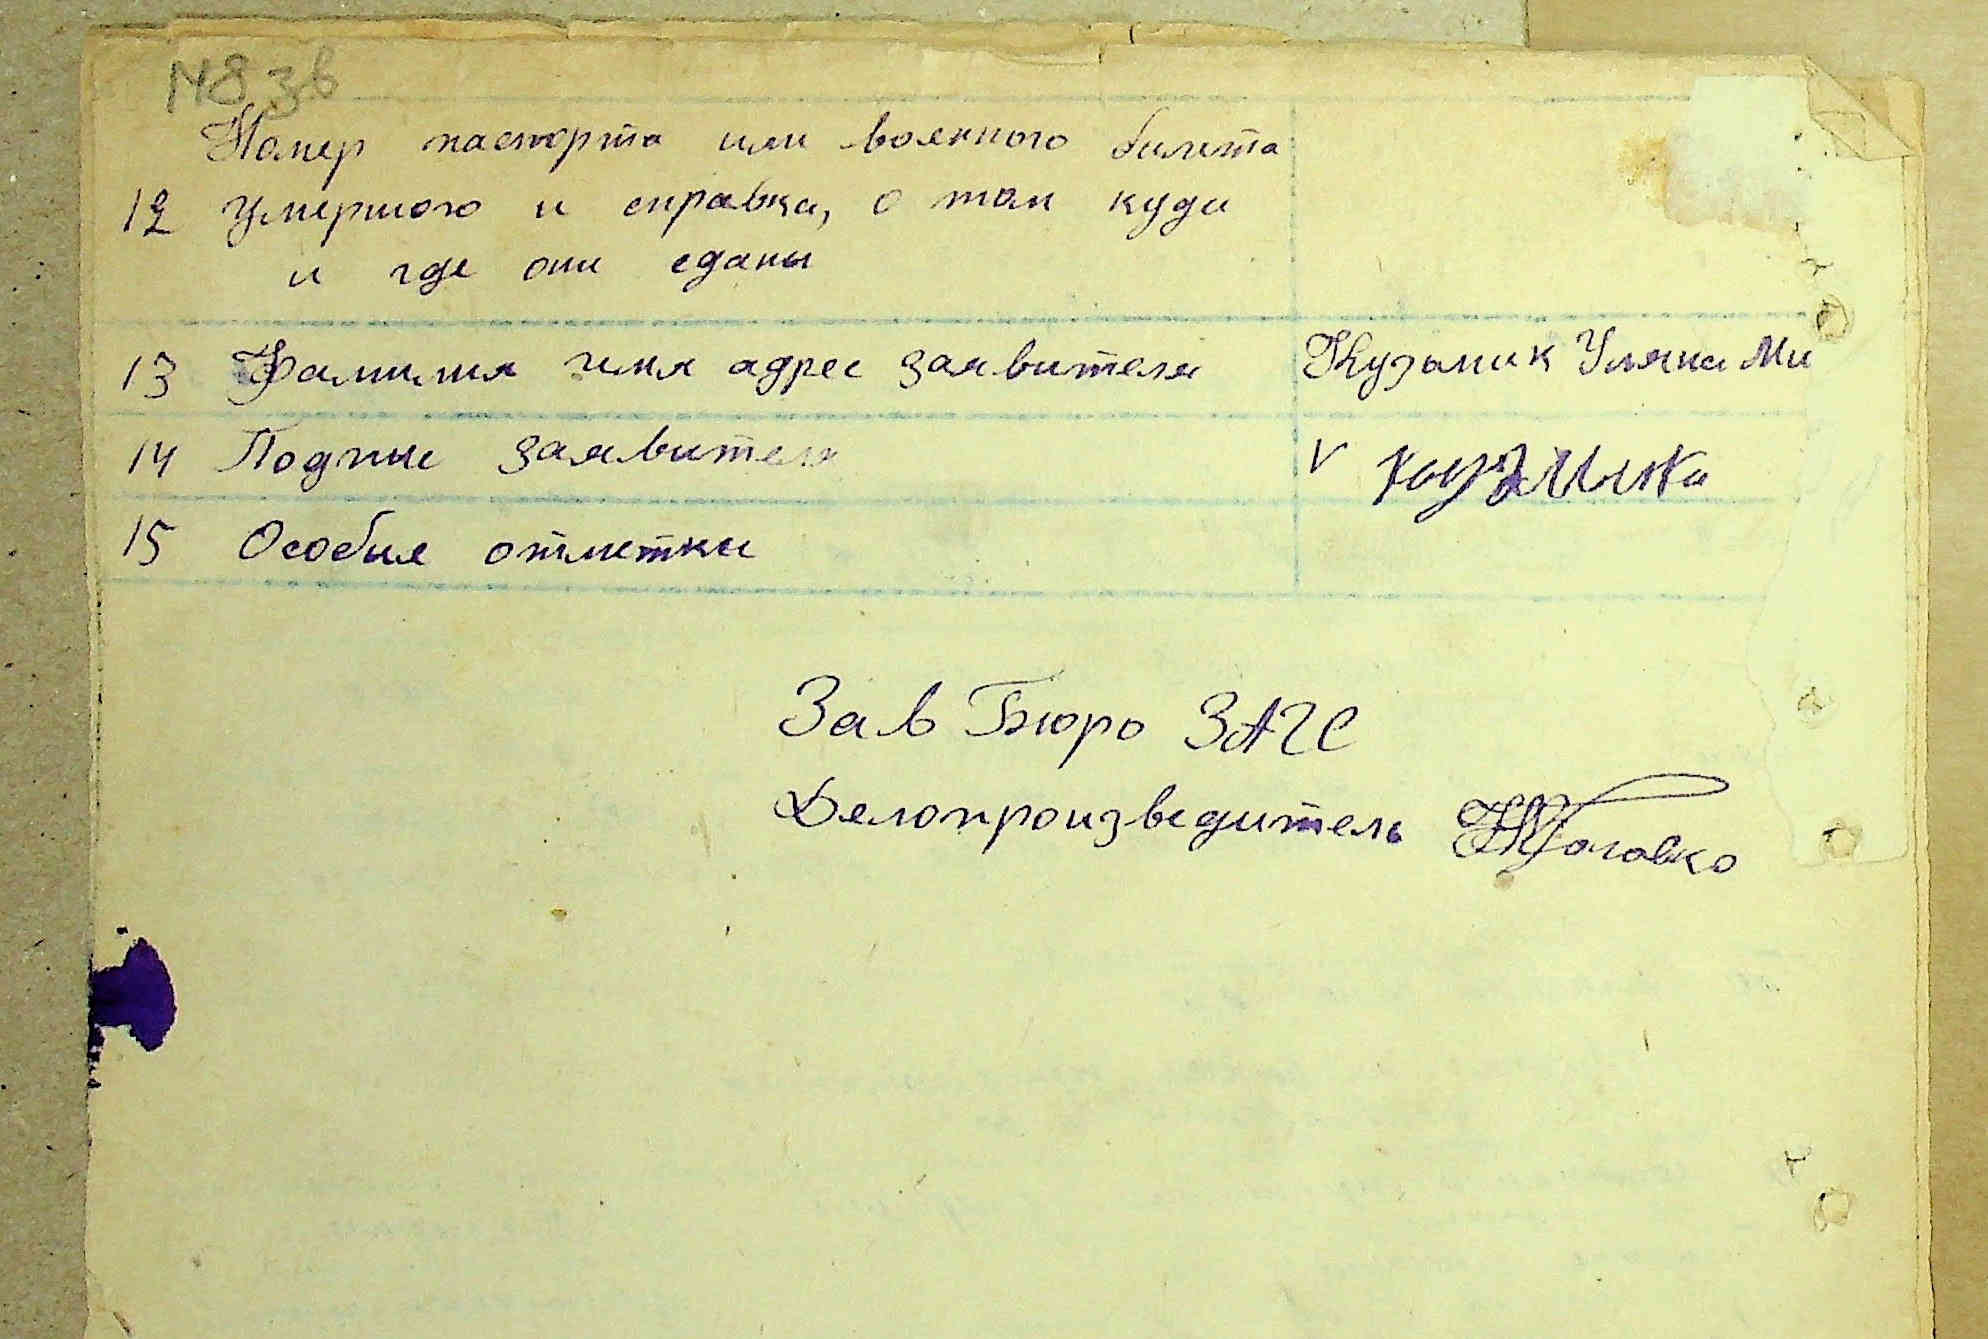 N 8 зв
Номер паспорта или военного билета
12 Умершого и справка, о том куда
и где они сданы
13 Фамилия имя адрес заявителя Кузьмик Уляна Ми
14 Подпис заявителя V Кузмика
15 Особые отметки
Зав Бюро ЗАГС
Делопроизведитель Головко